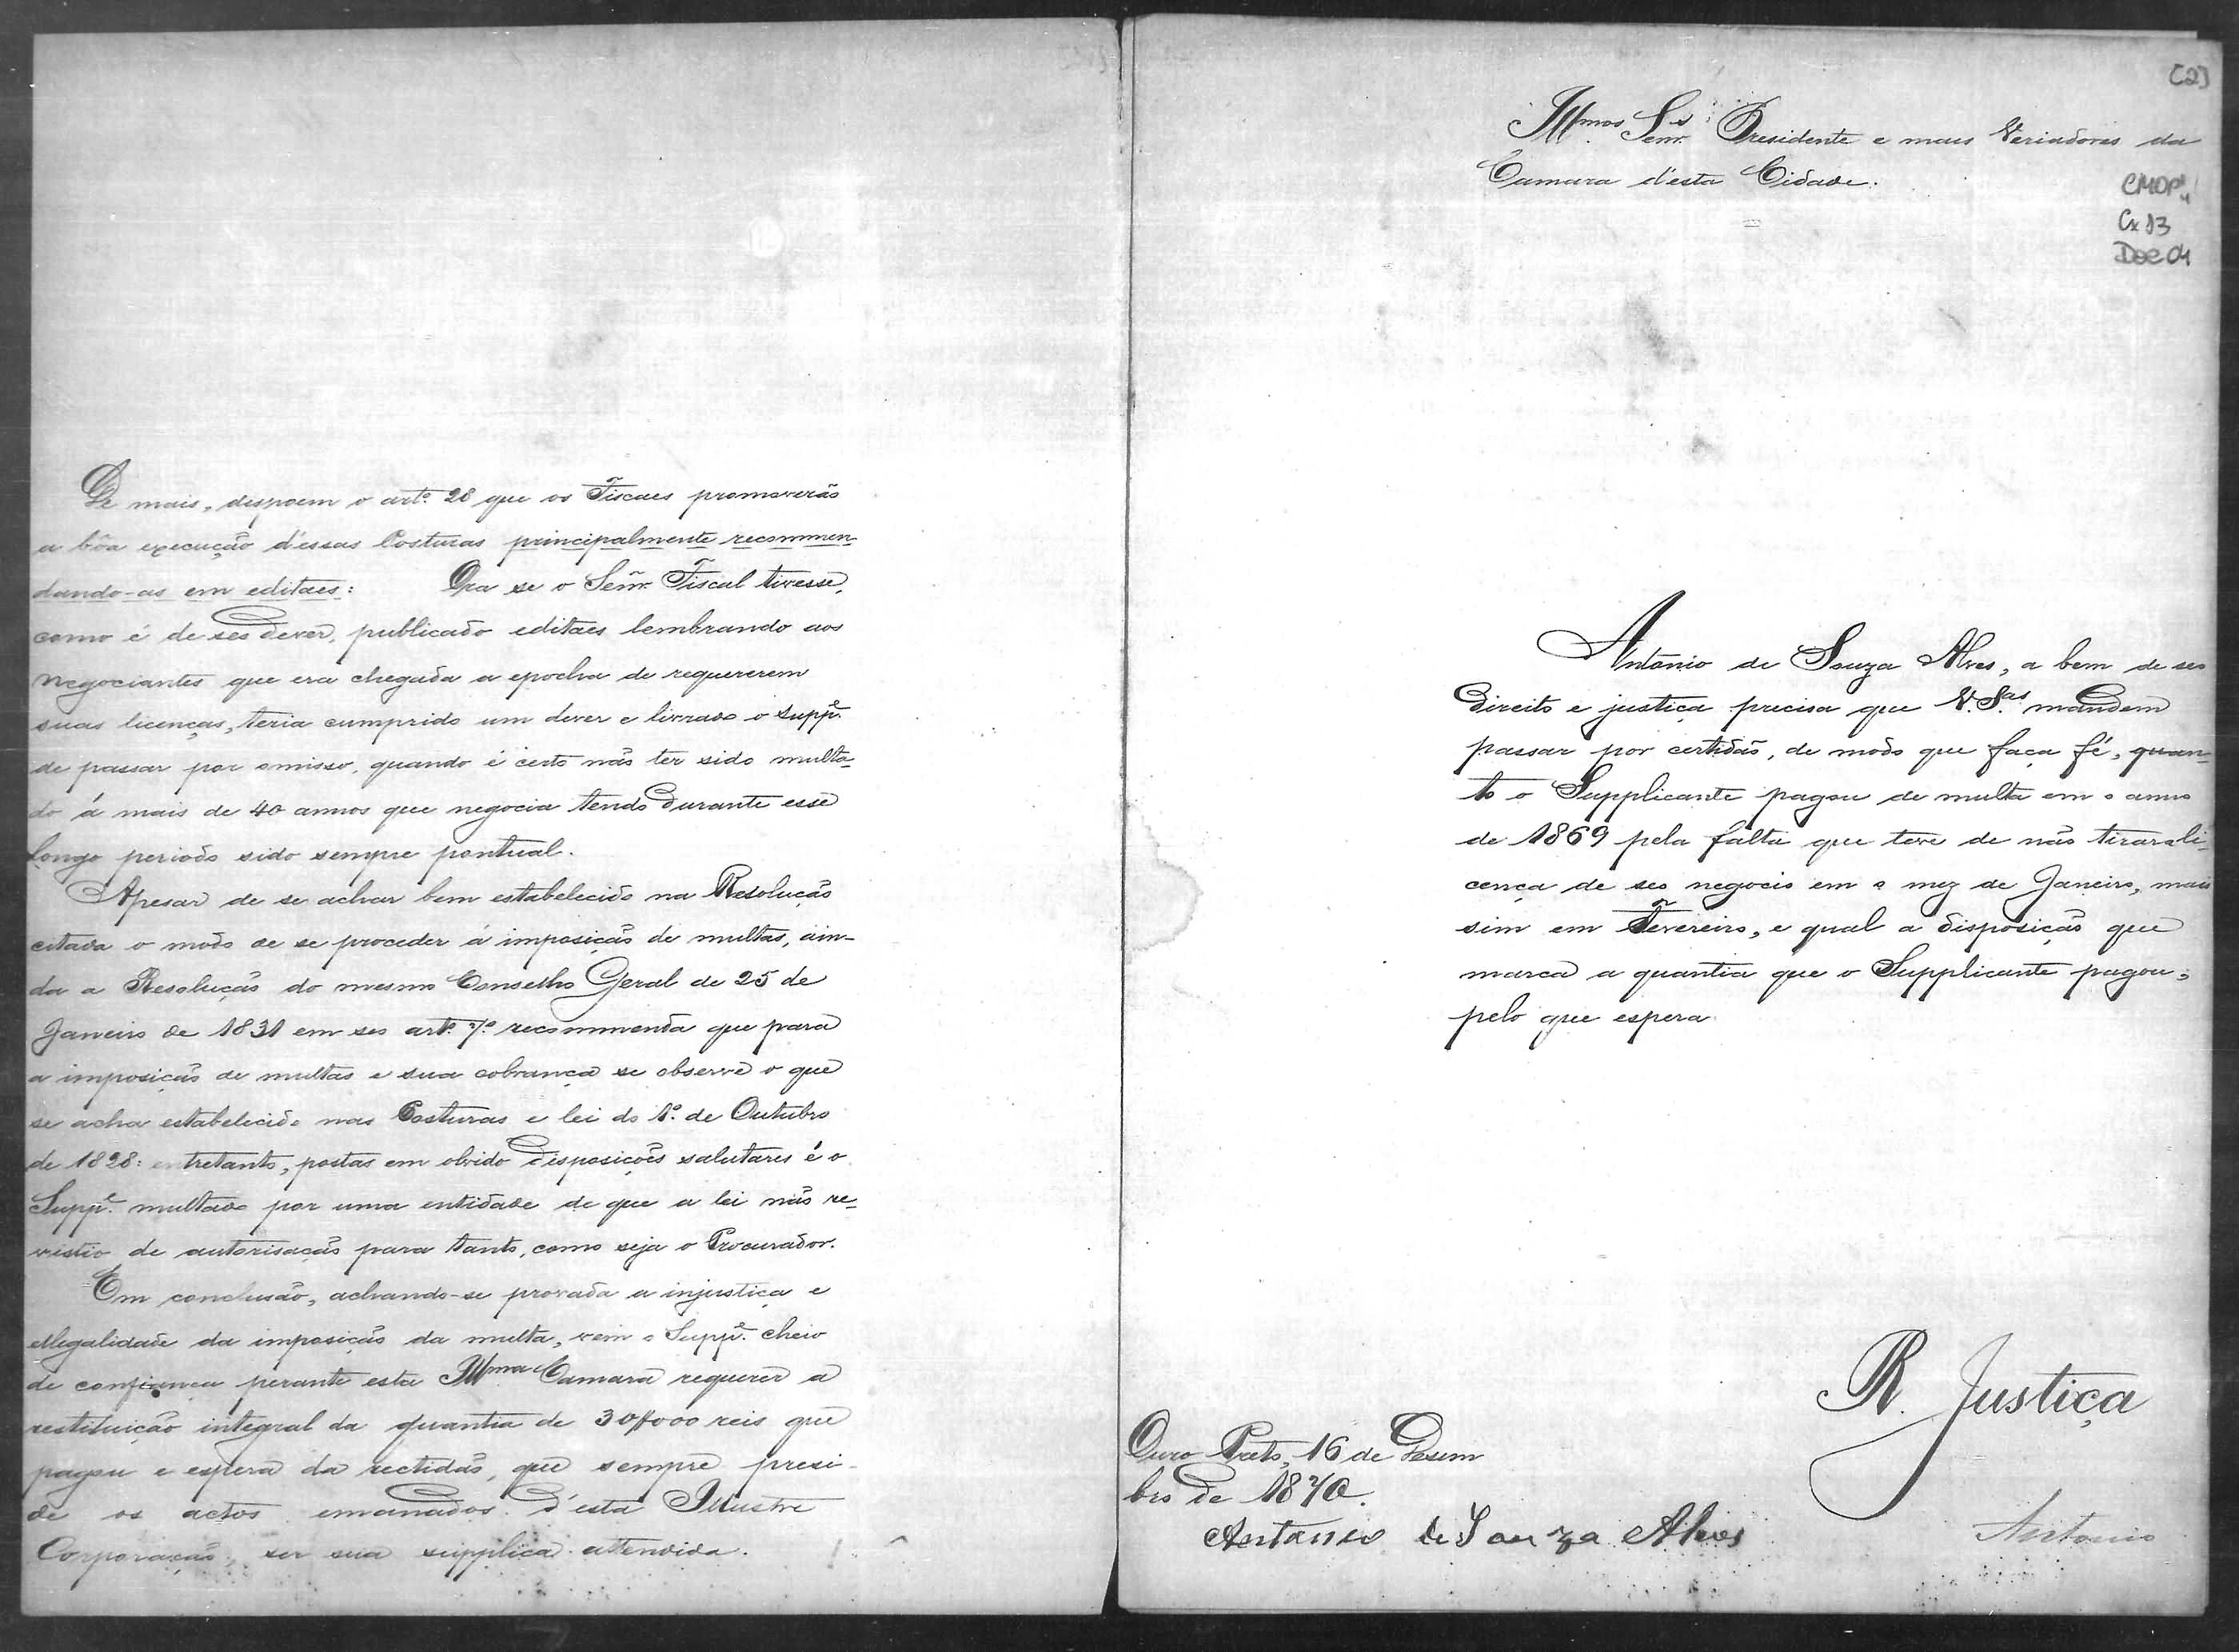 De mais, dispoem o artº. 28 que os Fiscaes promoverão
a bôa execução d'essas Posturas principalmente recommen-
dando-as em editaes: Ora se o Señr. Fiscal tivesse,
como é de seo dever, publicado editaes lembrando aos
negociantes que era chegada a epocha de requererem
suas licenças, teria cumprido um dever e livrado o Suppe.
de passar por omisso, quando é certo não ter sido multa-
do á mais de 40 annos que negocia tendo durante esse
longo periodo sido sempre pontual.
Apesar de se achar bem estabelecido na Resolução
citada o modo de se proceder á imposição de multas, ain-
da a Resolução do mesmo Conselho Geral de 25 de
Janeiro de 1831 em seo artº. 7º. recommenda que para
a imposição de multas e sua cobrança se observe o que
se acha estabelecido nas Posturas e lei do 1º. de Outubro
de 1828: entretanto, postas em olvido disposições salutares é o
Suppe. multado por uma entidade de que a lei não re-
vistio de autorisação para tanto, como seja o Procurador.
Em conclusão, achando-se provada a injustiça e
illegalidade da imposição da multa, vem o Suppe. cheio
de confiança perante esta Illma Camara requerer a
restituição integral da quantia de 30$000 reis que
pagou e espera da rectidão, que sempre presi-
de os actos emanados d'esta Illustre
Corporação, ser sua supplica attendida.
[2]
Illmos. Senrs. Presidente e mais Veriadores da
Camara d'esta Cidade.
CMOP
Cx 13
Doc 04
Antonio de Souza Alves, a bem de seo
Direito e justiça precisa que V. Sas. mandem
passar por certidão, de modo que faça fé, quan-
to o Supplicante pagou de multa em o anno
de 1869 pela falta que teve de não tirar a li-
cença de seo negocio em o mez de Janeiro, mais
sim em Fevereiro, e qual a disposição que
marca a quantia que o Supplicante pagou,
pelo que espera
R. Justiça
Ouro Preto, 16 de Desem
bro de 1870.
Antonio de Souza Alves
Antonio